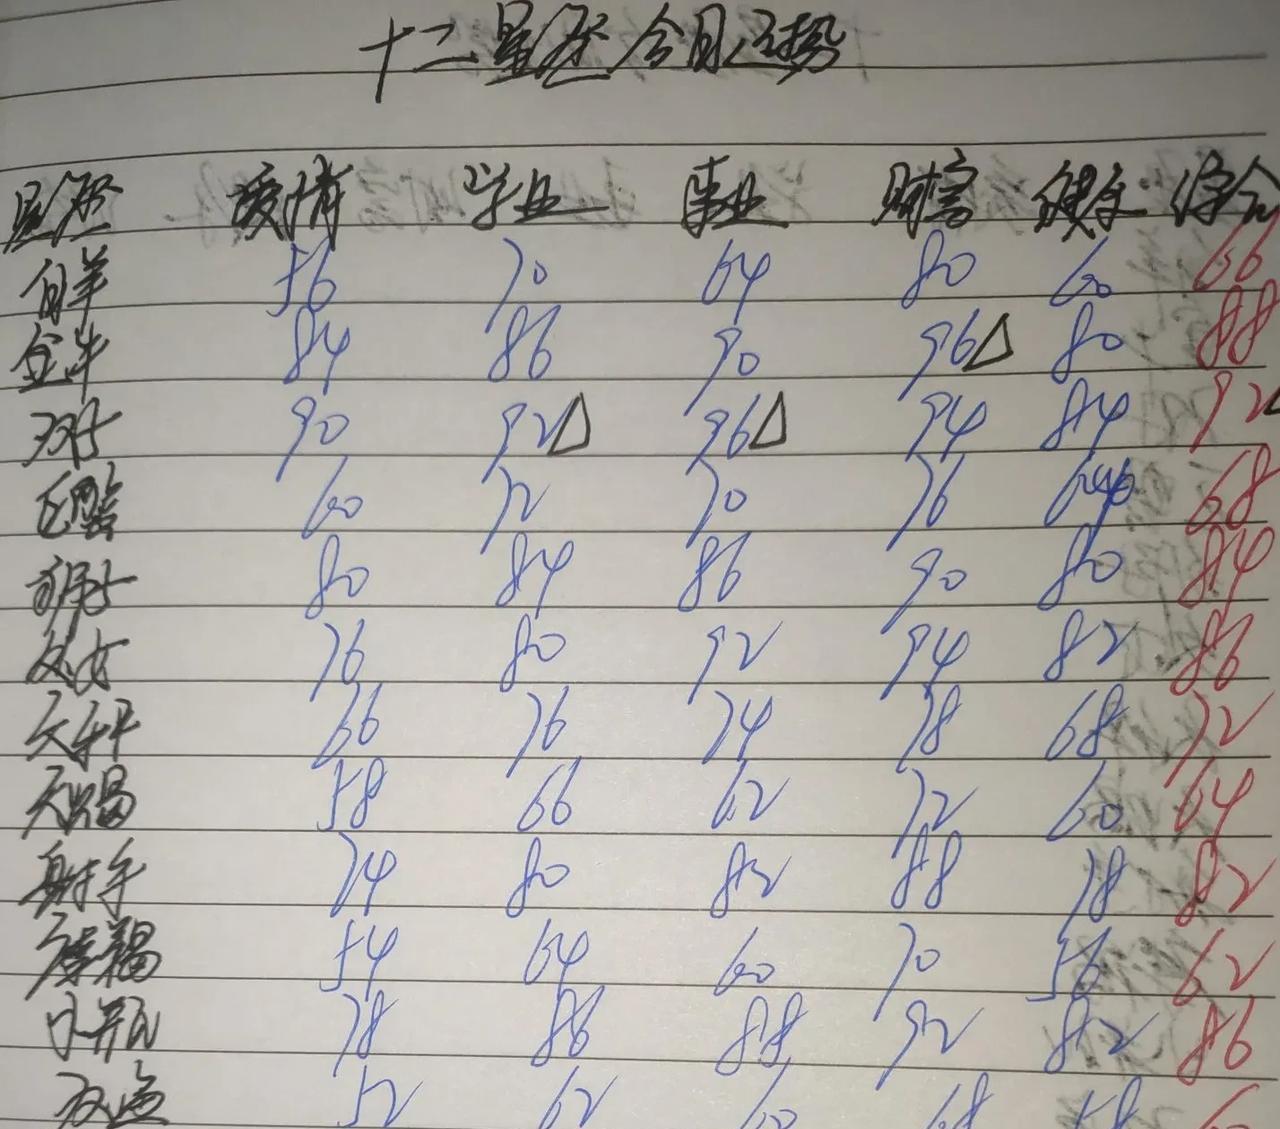 十二星座今日运势
星座 爱情 学业 事业 财富 健康 综合
白羊 56 70 64 80 60 66
金牛 84 86 90 96△ 80 88
双子 90 92△ 96△ 94 84 92△
巨蟹 60 72 70 76 64 68
狮子 80 84 86 90 80 84
处女 76 80 92 94 82 86
天秤 66 76 74 78 68 72
天蝎 58 66 62 72 60 64
射手 74 80 82 88 78 82
摩羯 54 64 60 70 56 62
水瓶 78 86 88 92 82 86
双鱼 52 62 60 68 58 60